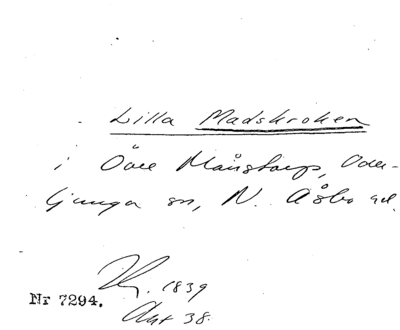 Lilla Madskroken
i Övre Månstorp, Oder-
ljunga sn, N. Åsbo hd.
1839
Nr 7294.
Akt 38.